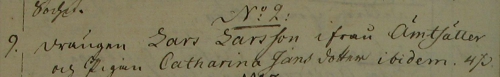 Sochn.
No 2:
9. Drängen Lars Larsson ifrån Ämtsätter
och Pigan Catharina Jans dotter ibidem.